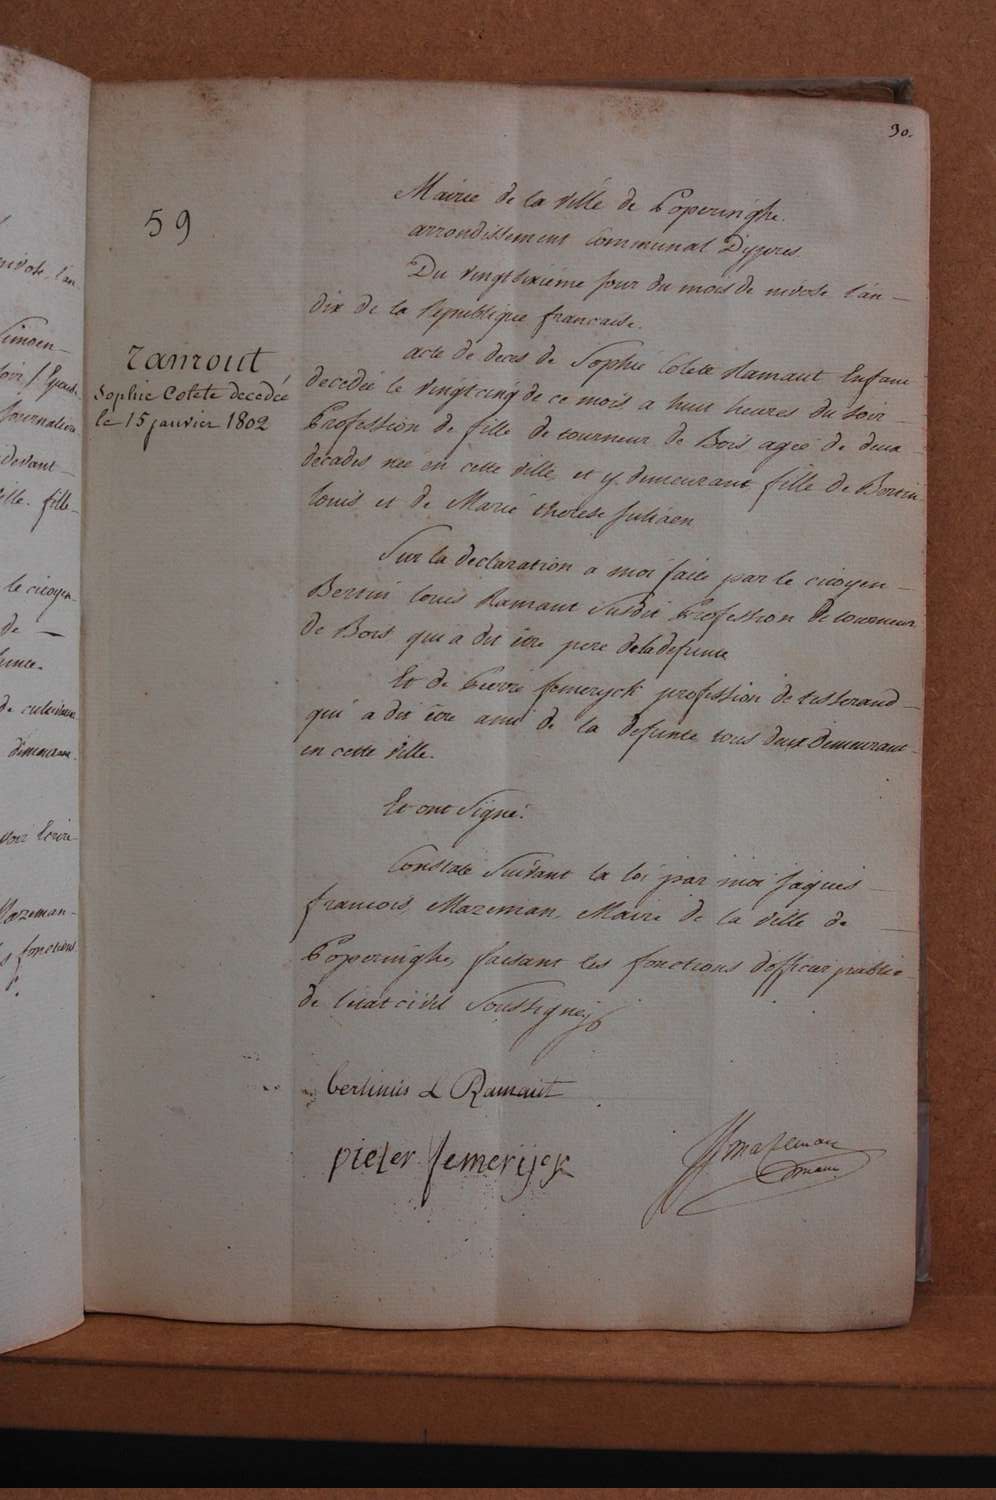 30.
59
Mairie de la ville de Poperinghe.
arrondissement Communal D'ypres
Du vingtsixiéme jour du mois de nivose l'an
dix de la republique francaise.
Ramout
Sophie Colete decedée
le 15 janvier 1802
acte de deces de Sophie Colete Ramaut Enfant
decedée le vingtcinq de ce mois a huit heures du soir
Profession de fille de tourneur de Bois agée de deux
decades née en cette ville, et y demeurant fille de Bertin
louis et de Marie therese Juliaen
Sur la declaration a moi faite par le citoyen
Bertin louis Ramaut susdit Profession de tourneur
de Bois qui a dit être pere de la defunte
Et de Pierre femeryck profession de tisserand
qui a dit être ami de la defunte tous deux demeurant
en cette ville.
Et ont Signé.
Constaté Suivant la loi par moi Jaques
francois Mazeman Maire de la ville de
Poperinghe, faisant les fonctions d'officier public
de l'etat civil Soussigné
bertinus L Ramaut
pieter femerijck
mazeman
maire
nivose l'an
Simoen
soir / Epouse
Journaliere
devant
ville. fille
le citoyen
de
funte.
de cultivateur
demeurant
voir Ecrire
Mazeman
s fonctions